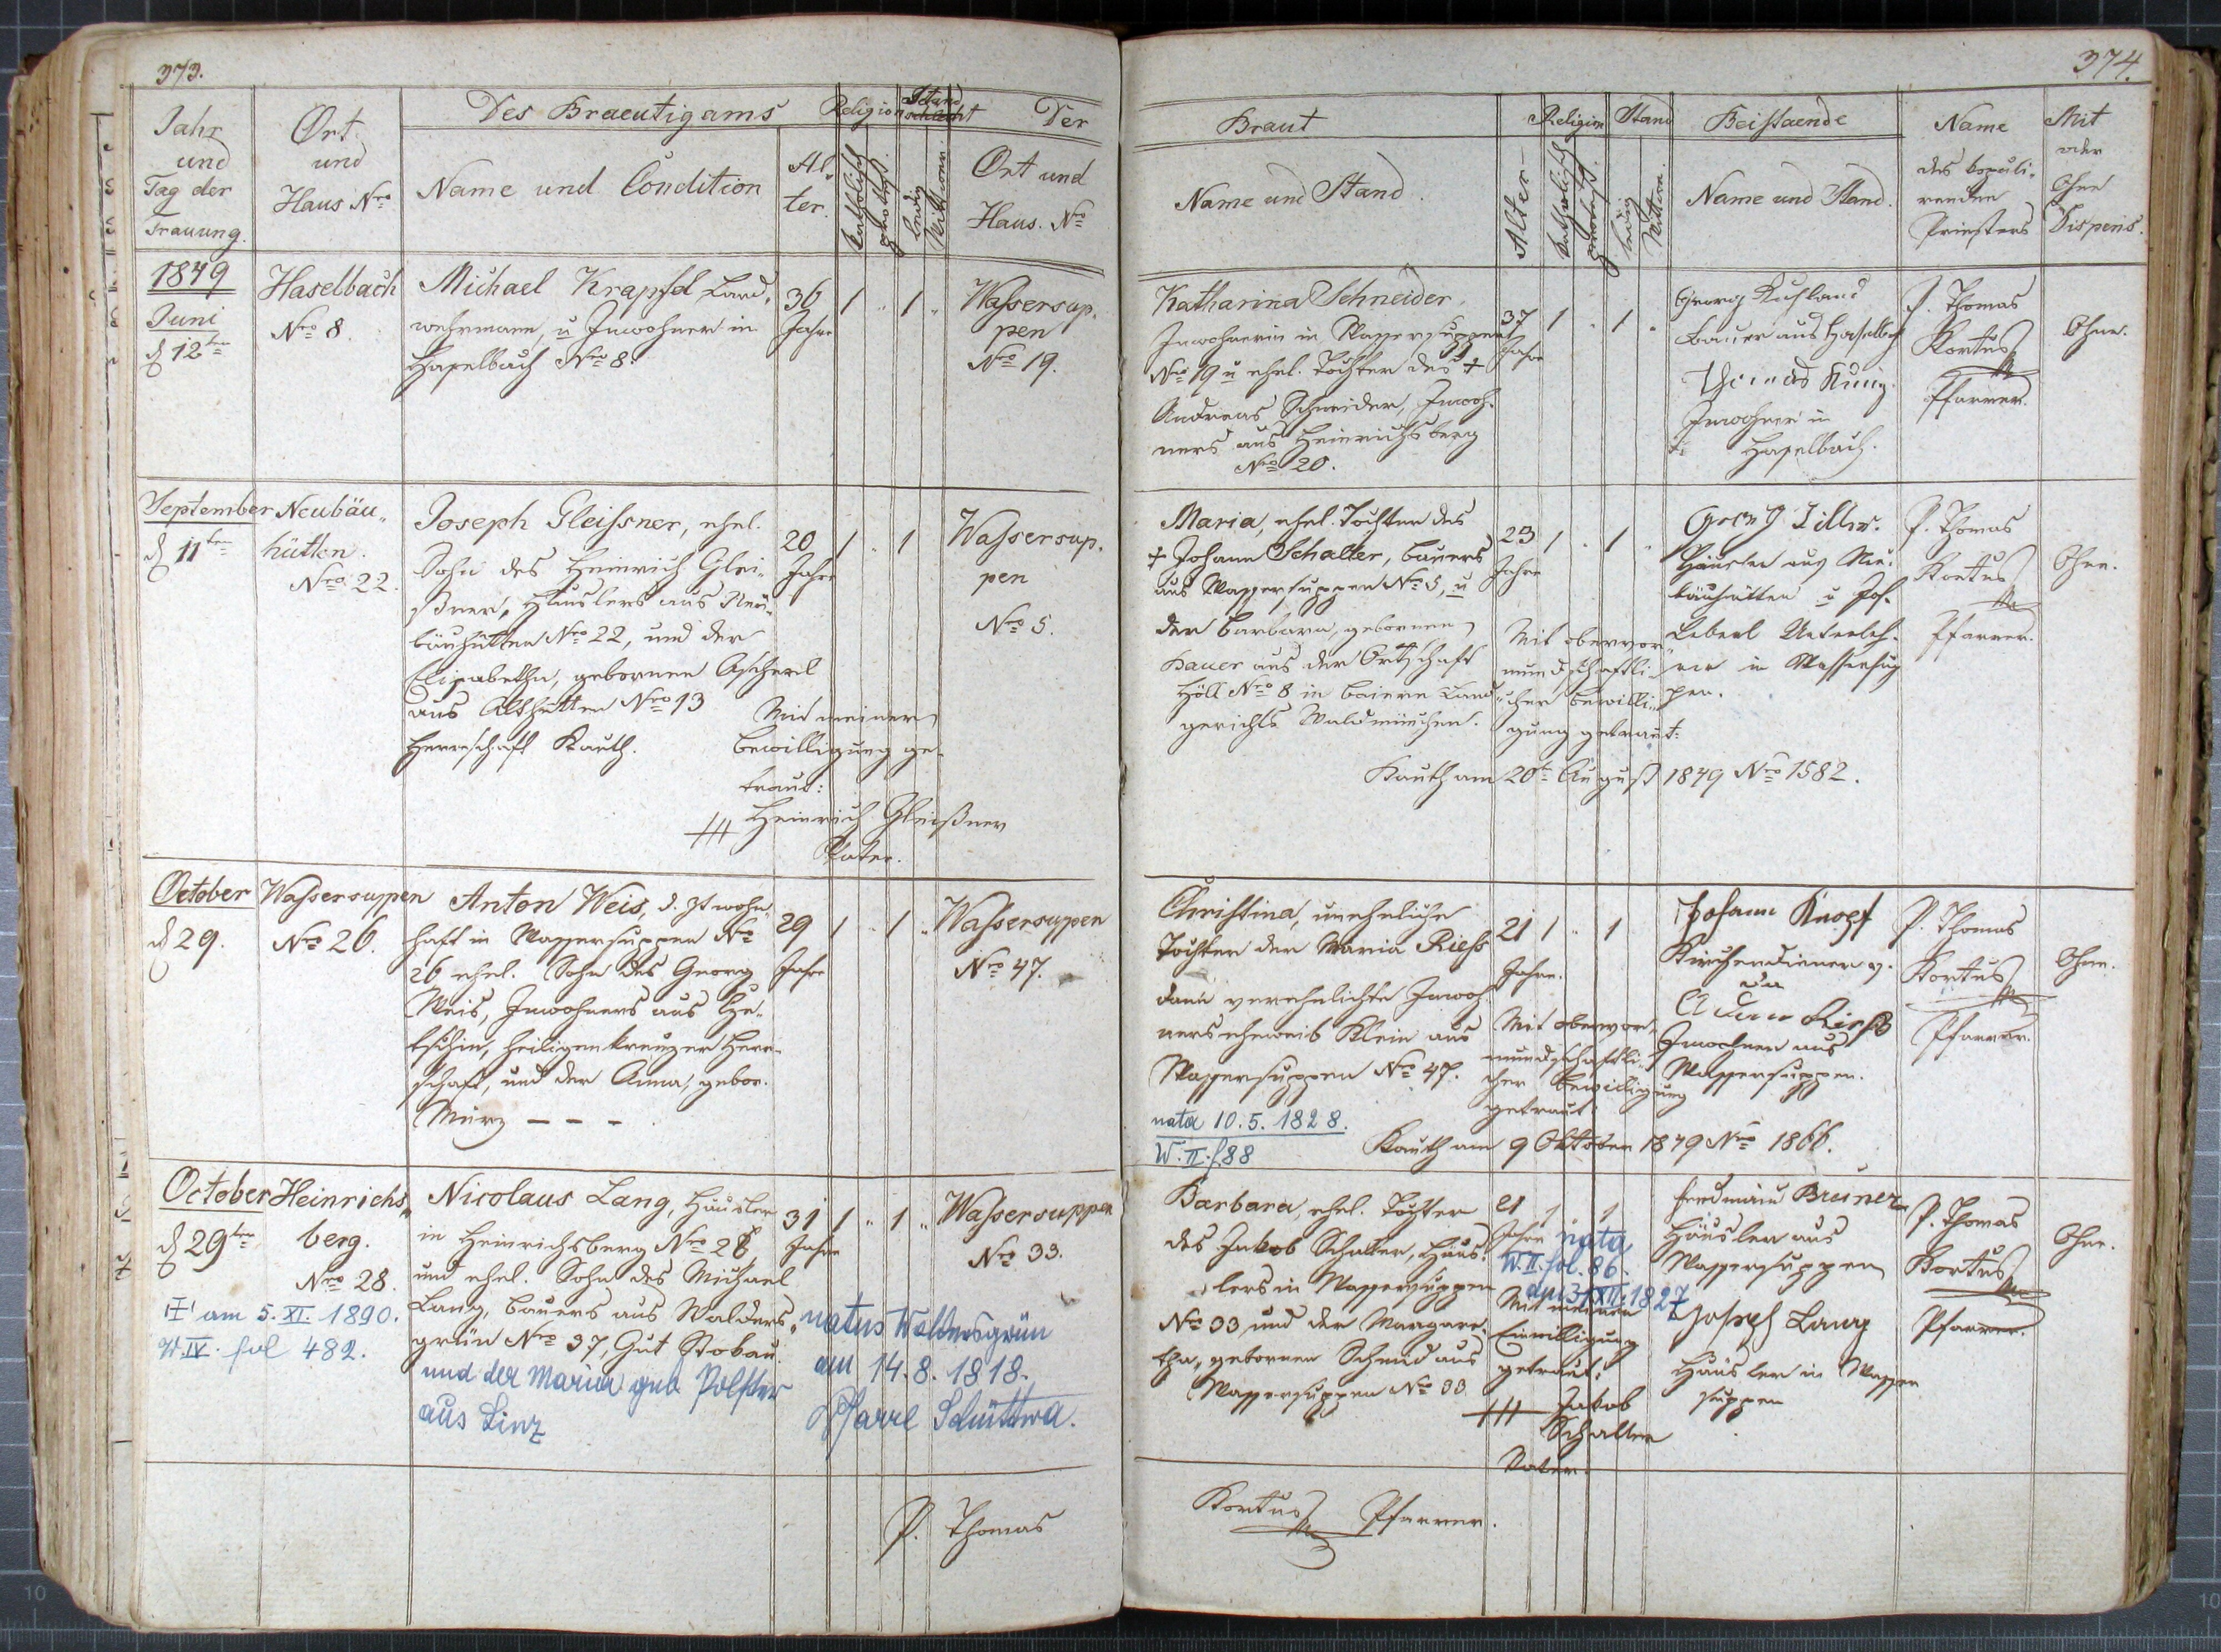 373.
Jahr
und
Tag der
Trauung.
Ort
und
Haus Nro
Des Braeutigams
Name und Condition
Al-
ter.
Religion
Katholisch
Stand
ledig
Wittwer.
Der
Ort und
Haus. No
1849
Juni
d 12ten
Haselbach
Nro 8
Michael Krapfel, Land-
wehrmann, u Inwohner in
Haselbach Nro 8.
36
Jahre
1 " 1 "
Wassersup-
pen
Nro 19.
September
d 11ten
Neubäu-
hütten.
Nro 22.
Joseph Gleissner, ehel.
Sohn des Heinrich Glei-
ßner, Häuslers aus Neu-
bäuhütten Nro 22, und der
Elisabetha, gebornen Ascherl
aus Althütten Nro 13
Herrschaft Kauth.
Mit meiner
Bewilligung ge-
traut:
+++ Heinrich Gleißner
Vater.
20
Jahre
1 " 1
Wassersup-
pen
Nro 5.
October
d 29.
Wassersuppen
Nro 26.
Anton Weis, d. Zt wohn-
haft in Wassersuppen Nro
26 ehel. Sohn des Georg
Weis, Inwohners aus
tschin, heiligenkreuzer Herr-
schaft, und der Anna, gebor.
März – – –
29
Jahre
1 " 1 "
Wassersuppen
Nro 47.
October
d 29ten
Heinrichs-
berg.
Nro 28.
+ am 5. XI. 1890.
W. IV. fol 482.
Nicolaus Lang, Häusler
in Heinrichsberg Nro 28,
und ehel. Sohn des Michael
Lang, Bauers aus Walders-
grün Nro 37, Gut Stokau.
und der Maria geb. Polster
aus Linz
31
Jahre
1 " 1 "
Wassersuppen
Nro 33.
natus Waldersgrün
am 14. 8. 1818.
Pfarre Schüttwa.
P. Thomas
374.
Braut
Name und Stand.
Alter
Religion
Katholisch
Stand
ledig
Wittwe.
Beistaende
Name und Stand.
Name
des kopuli-
renden
Priesters
Mit
oder
Ohne
Dispens.
Katharina Schneider,
Inwohnerin in Wassersuppen
Nro 19 u ehel. Tochter des +
Andreas Schneider, Inwoh-
ners aus Heinrichsberg
Nro 20.
37
Jahre
1 " 1 "
Georg
Bauer aus Haselbach
Thomas König
Inwohner in
Haselbach.
P. Thomas
Kortus
Pfarrer.
Ohne.
Maria, ehel. Tochter des
+ Johann Schalter, Bauers
aus Wassersuppen Nro 5, u
der Barbara, gebornen
Bauer aus der Ortschaft
Höll Nro 8 in Baiern Land-
gerichts Waldmünchen.
23
Jahre
1 " 1 "
Mit obervor-
mundschaftli-
cher Bewilli-
gung getraut:
Kauth am 20t August 1849 Nro 1582.
Georg
Häusler aus Neu-
bäuhütten u Jos.
in Wassersup-
pen.
P. Thomas
Kortus
Pfarrer.
Ohne.
Christina, uneheliche
Tochter der Maria Riess
dann verehelichte Inwoh-
nerseheweib Klein aus
Wassersuppen Nro 47.
nata 10. 5. 1828.
W. II. f. 88
21
Jahre.
1 " 1
Mit obervor-
mundschaftli-
cher Bewilligung
getraut:
Kauth am 9 Oktober 1849 Nro 1866.
Johann Knopf
Kirchendiener
Adam Riess
Inwohner aus
Wassersuppen.
P. Thomas
Kortus
Pfarrer.
Ohne.
Barbara, ehel. Tochter
des Jakob Schalter, Häus-
lers in Wassersuppen
Nro 33, und der Margare-
tha, gebornen Schmid aus
Wassersuppen Nro 33.
21
Jahre
1 " 1
nata
W. II. fol. 86.
am 31 XII. 1827
Mit meiner
Einwilligung
getraut:
+++ Jakob
Schalter
Vater.
Ferdinand Bruner
Häusler aus
Wassersuppen
Joseph Lang
Häusler in Wasser-
suppen
P. Thomas
Kortus
Pfarrer.
Ohne.
Kortus Pfarrer.